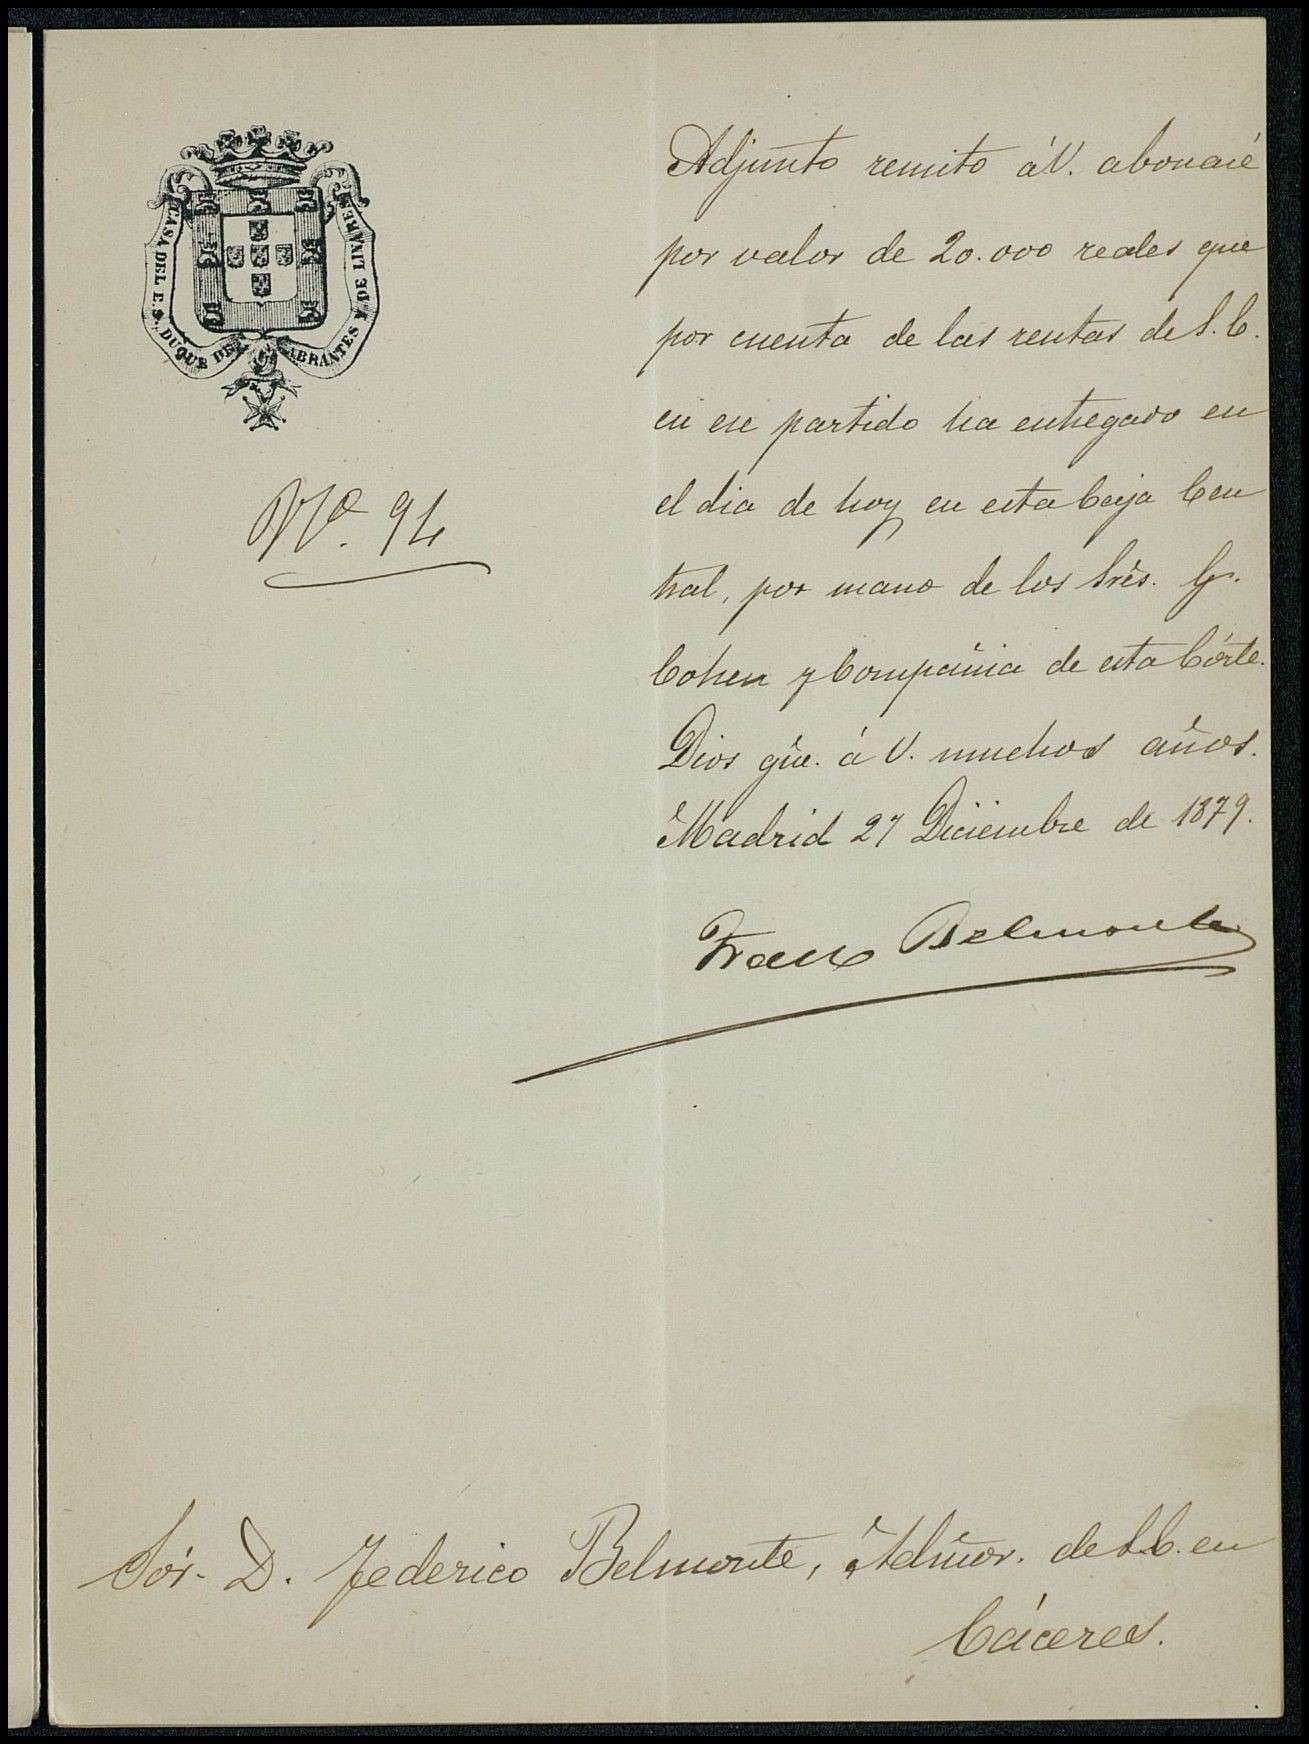 CASA DEL E.S. DUQUE DE ABRANTES Y DE LINARES
Nº. 94
Adjunto remito á V. abonaré
por valor de 20.000 reales que
por cuenta de las rentas de S.E.
en ese partido ha entregado en
el dia de hoy en esta Caja Cen
tral, por mano de los Sres. G.
Cohen y Compañia de esta Córte.
Dios gûe. á V. muchos años.
Madrid 27 Diciembre de 1879.
Franco Belmonte
Sór. D. Federico Belmonte, Admor. de S.E. en
Cáceres.